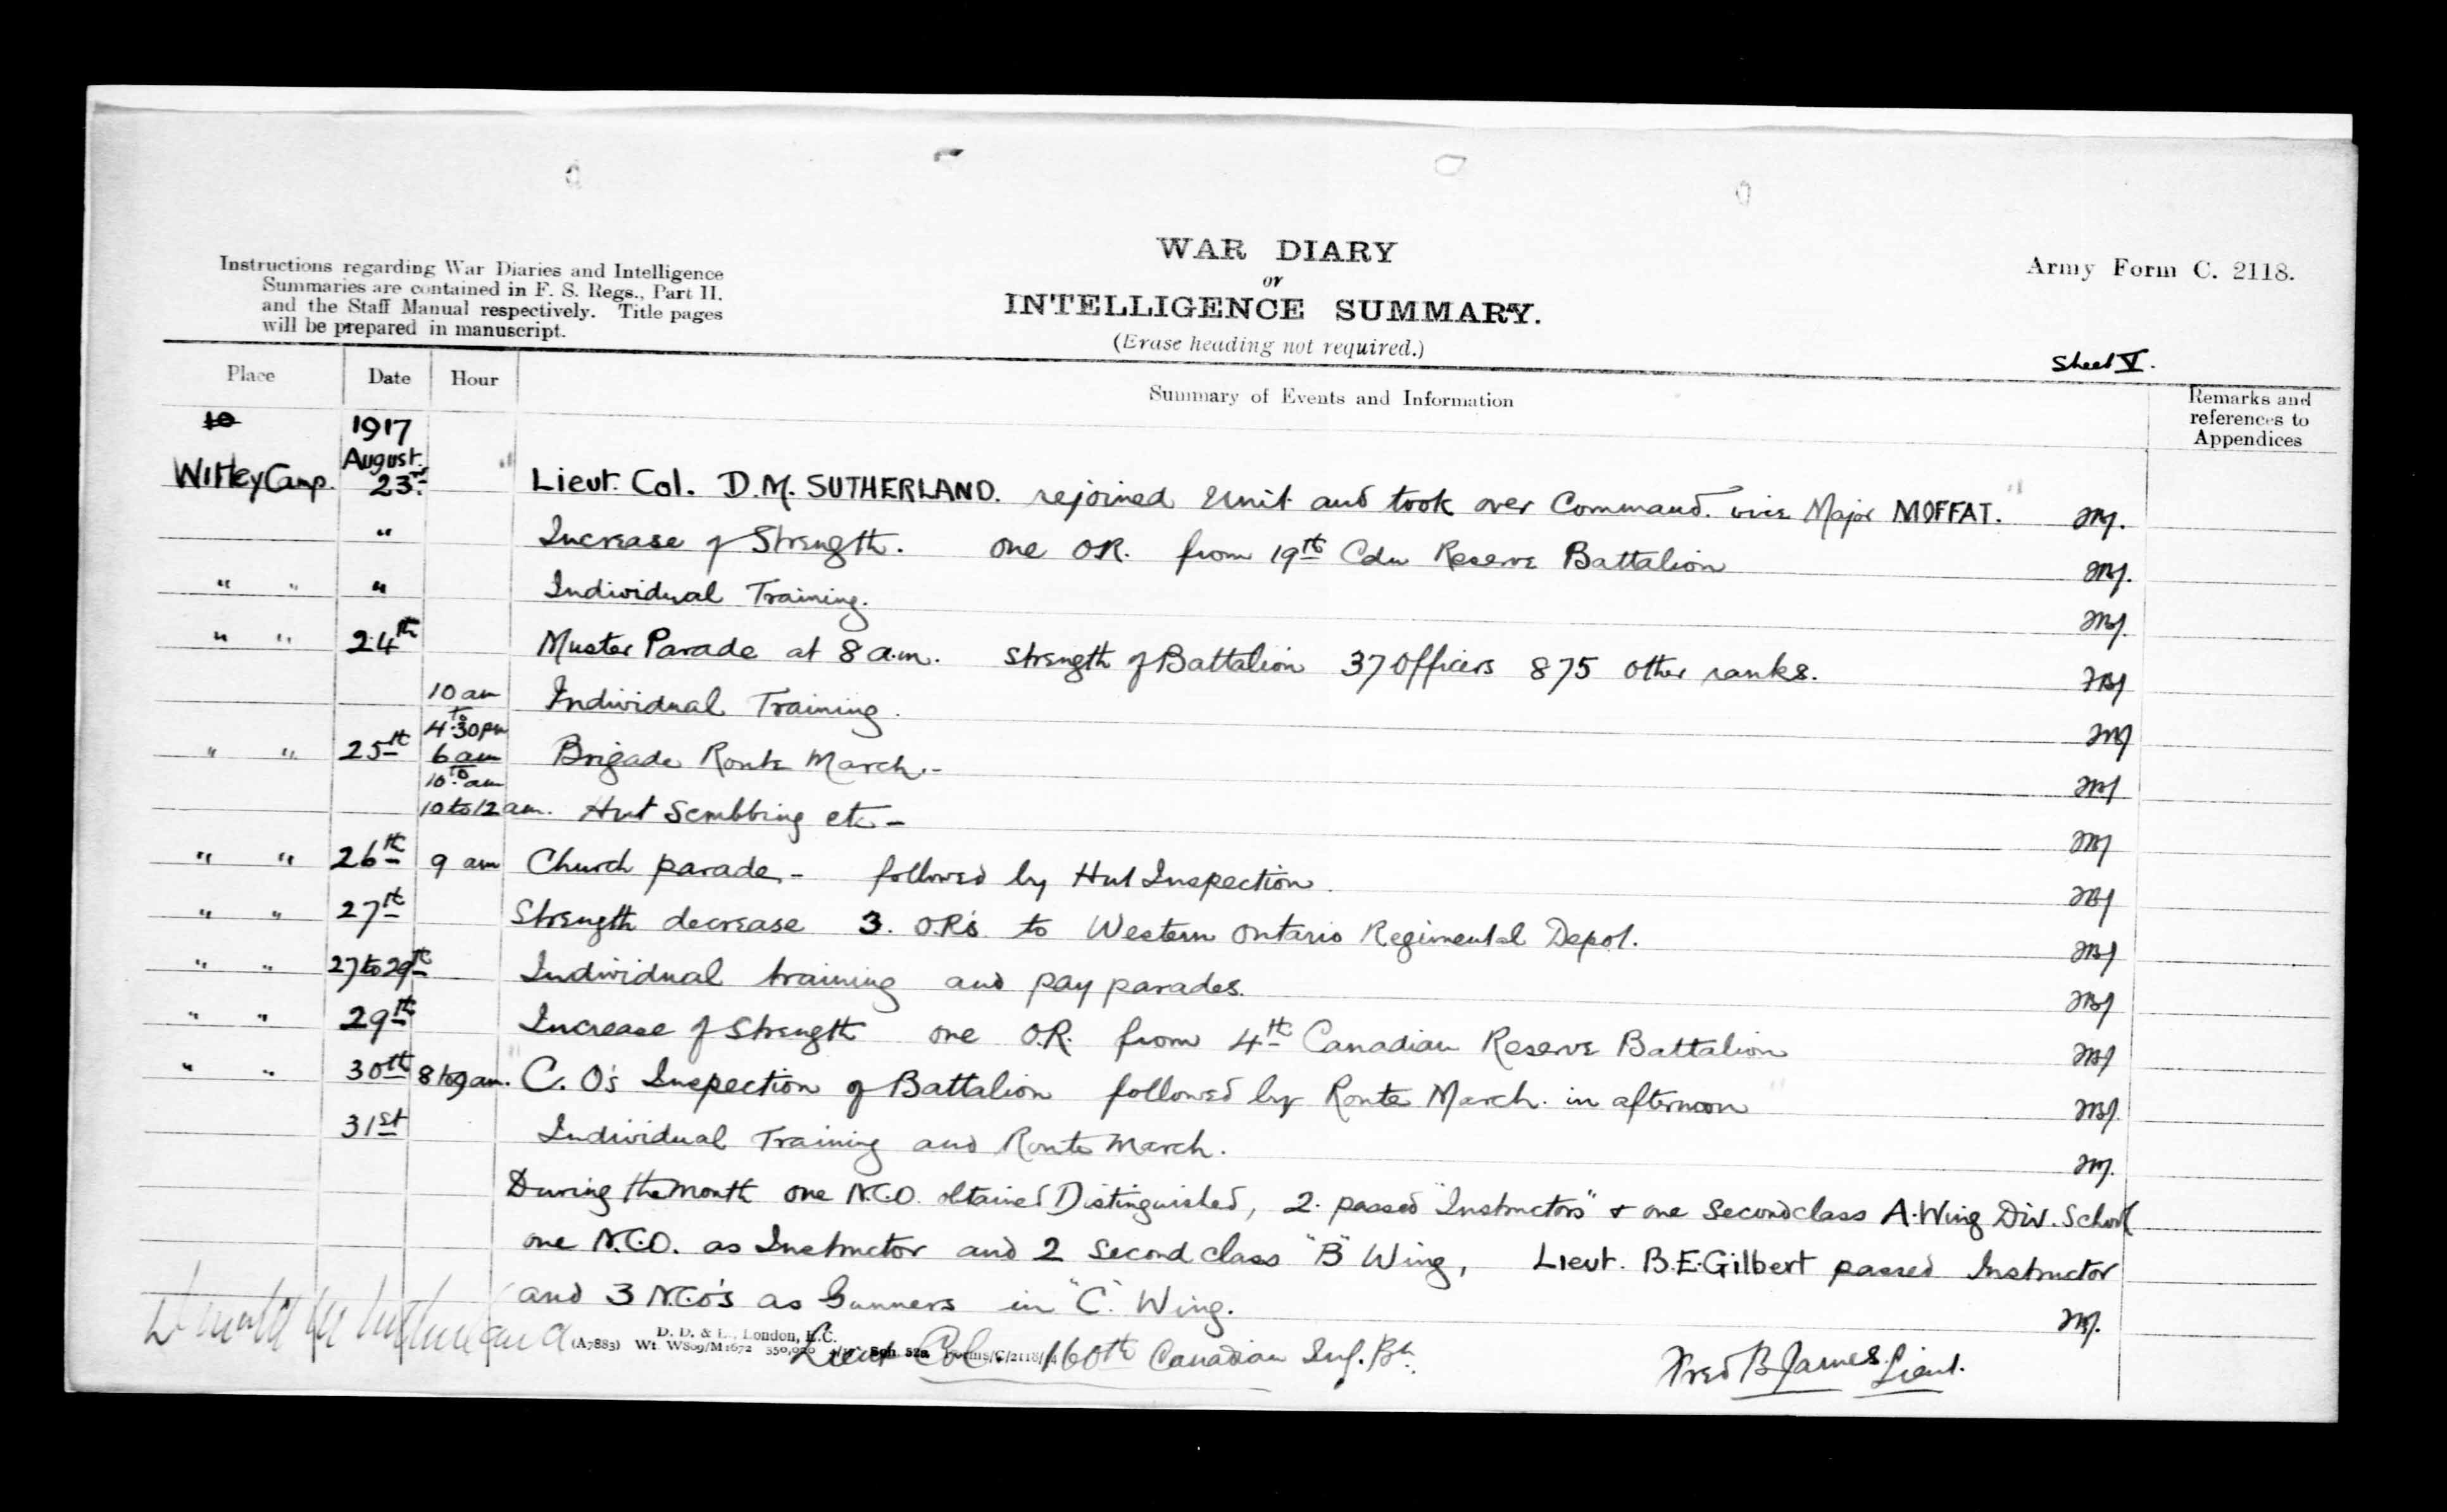 WAR DIARY
or
INTELLIGENCE SUMMARY.
(Erase heading not required.)
Instructions regarding War Diaries and Intelligence
Summaries are contained in F. S. Regs., Part II.
and the Staff Manual respectively. Title pages
will be prepared in manuscript.
Army Form C. 2118.
Sheet V.
Place Date Hour Summary of Events and Information Remarks and references to Appendices
1917
August
Witley Camp. 23rd Lieut. Col. D.M. SUTHERLAND. rejoined Unit and took over Command. vice Major MOFFAT.
" Increase of Strength. one O.R. from 19th Cdn Reserve Battalion
" " " Individual Training.
" " 24th Muster Parade at 8 a.m. Strength of Battalion 37 Officers 875 other ranks.
10 am to 4.30 pm Individual Training.
" " 25th 6 am to 10 am Brigade Route March.-
10 to 12 am. Hut Scrubbing etc-
" " 26th 9 am Church parade.- followed by Hut Inspection.
" " 27th Strength decrease 3. O.R's to Western Ontario Regimental Depot.
" " 27 to 29th Individual training and pay parades.
" " 29th Increase of Strength one O.R. from 4th Canadian Reserve Battalion
" " 30th 8 to 9 am. C. O's Inspection of Battalion followed by Route March. in afternoon
31st Individual Training and Route March.
During the month one N.C.O. obtained Distinguished, 2. passed "Instructors" & one Second class A. Wing Div. School
one N.C.O. as Instructor and 2 Second class "B" Wing, Lieut. B.E. Gilbert passed Instructor
and 3 N.C.O's as Gunners in "C" Wing.
D. D. & L., London, E.C.
(A7883) Wt W809/M1672 350,000 Sch. 52a Forms/C/2118/
Lieut Col. 160th Canadian Inf. Bn.
Fred B James. Lieut.